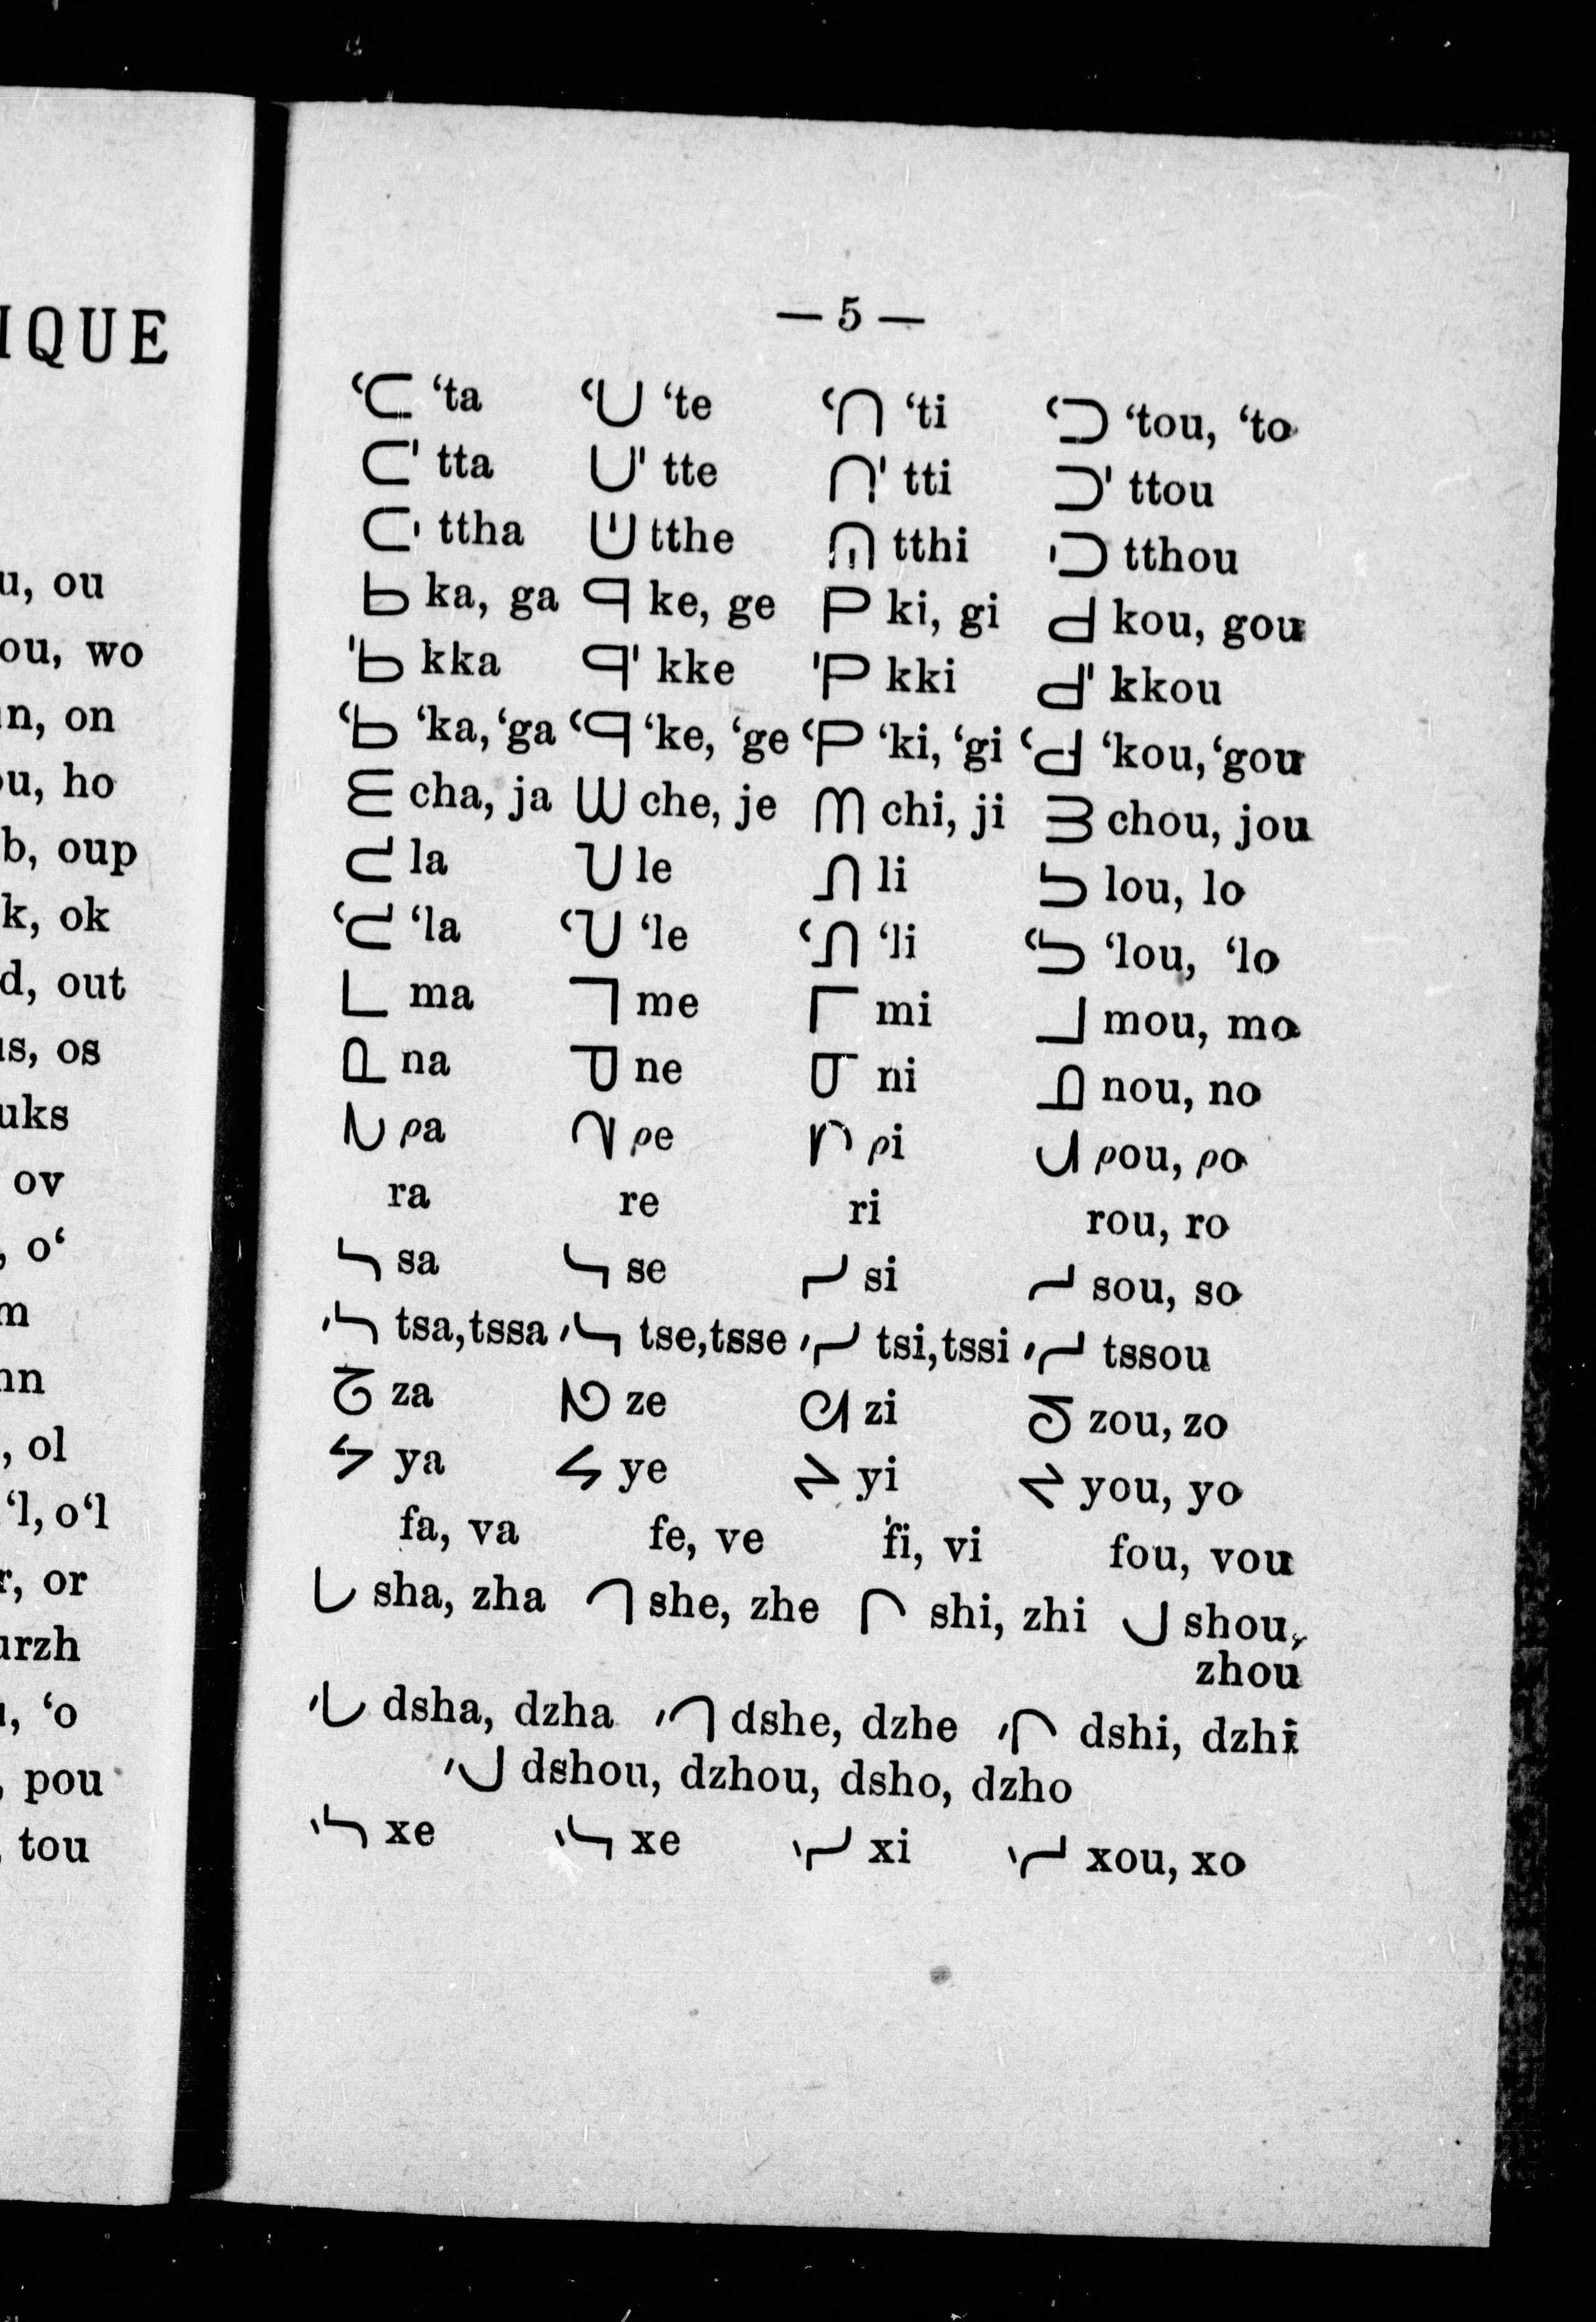 — 5 —
‘ᑕ ‘ta ‘ᑌ ‘te ‘ᑎ ‘ti ‘ᑐ ‘tou, ‘to
ᑕ' tta ᑌ' tte ᑎ' tti ᑐ' ttou
ᕱ ttha ᕮ tthe ᕯ tthi ᕰ tthou
ᑲ ka, ga ᑫ ke, ge ᑭ ki, gi ᑯ kou, gou
'ᑲ kka ᑫ' kke 'ᑭ kki ᑯ' kkou
‘ᑲ ‘ka, ‘ga ‘ᑫ ‘ke, ‘ge ‘ᑭ ‘ki, ‘gi ‘ᑯ ‘kou, ‘gou
ᗴ cha, ja ᗯ che, je ᗰ chi, ji ᗱ chou, jou
ᓚ la ᓓ le ᓕ li ᓗ lou, lo
‘ᓚ ‘la ‘ᓓ ‘le ‘ᓕ ‘li ‘ᓗ ‘lou, ‘lo
ᒪ ma ᒣ me ᒥ mi ᒧ mou, mo
ᓇ na ᓀ ne ᓂ ni ᓄ nou, no
ᔭ ρa ᔦ ρe ᔨ ρi ᔪ ρou, ρo
ra re ri rou, ro
ᓴ sa ᓭ se ᓯ si ᓱ sou, so
ˊᓴ tsa, tssa ˊᓭ tse, tsse ˊᓯ tsi, tssi ˊᓱ tssou
ᕍ za ᕄ ze ᕇ zi ᕊ zou, zo
ᔕ ya ᔐ ye ᔑ yi ᔓ you, yo
fa, va fe, ve fi, vi fou, vou
ᒐ sha, zha ᒉ she, zhe ᒋ shi, zhi ᒍ shou,
zhou
ˊᒐ dsha, dzha ˊᒉ dshe, dzhe ˊᒋ dshi, dzhi
ˊᒍ dshou, dzhou, dsho, dzho
ˋᓴ xe ˋᓭ xe ˋᓯ xi ˋᓱ xou, xo
IQUE
u, ou
ou, wo
n, on
ou, ho
b, oup
k, ok
d, out
us, os
uks
ov
, o‘
m
nn
, ol
‘l, o‘l
r, or
urzh
, ‘o
, pou
tou